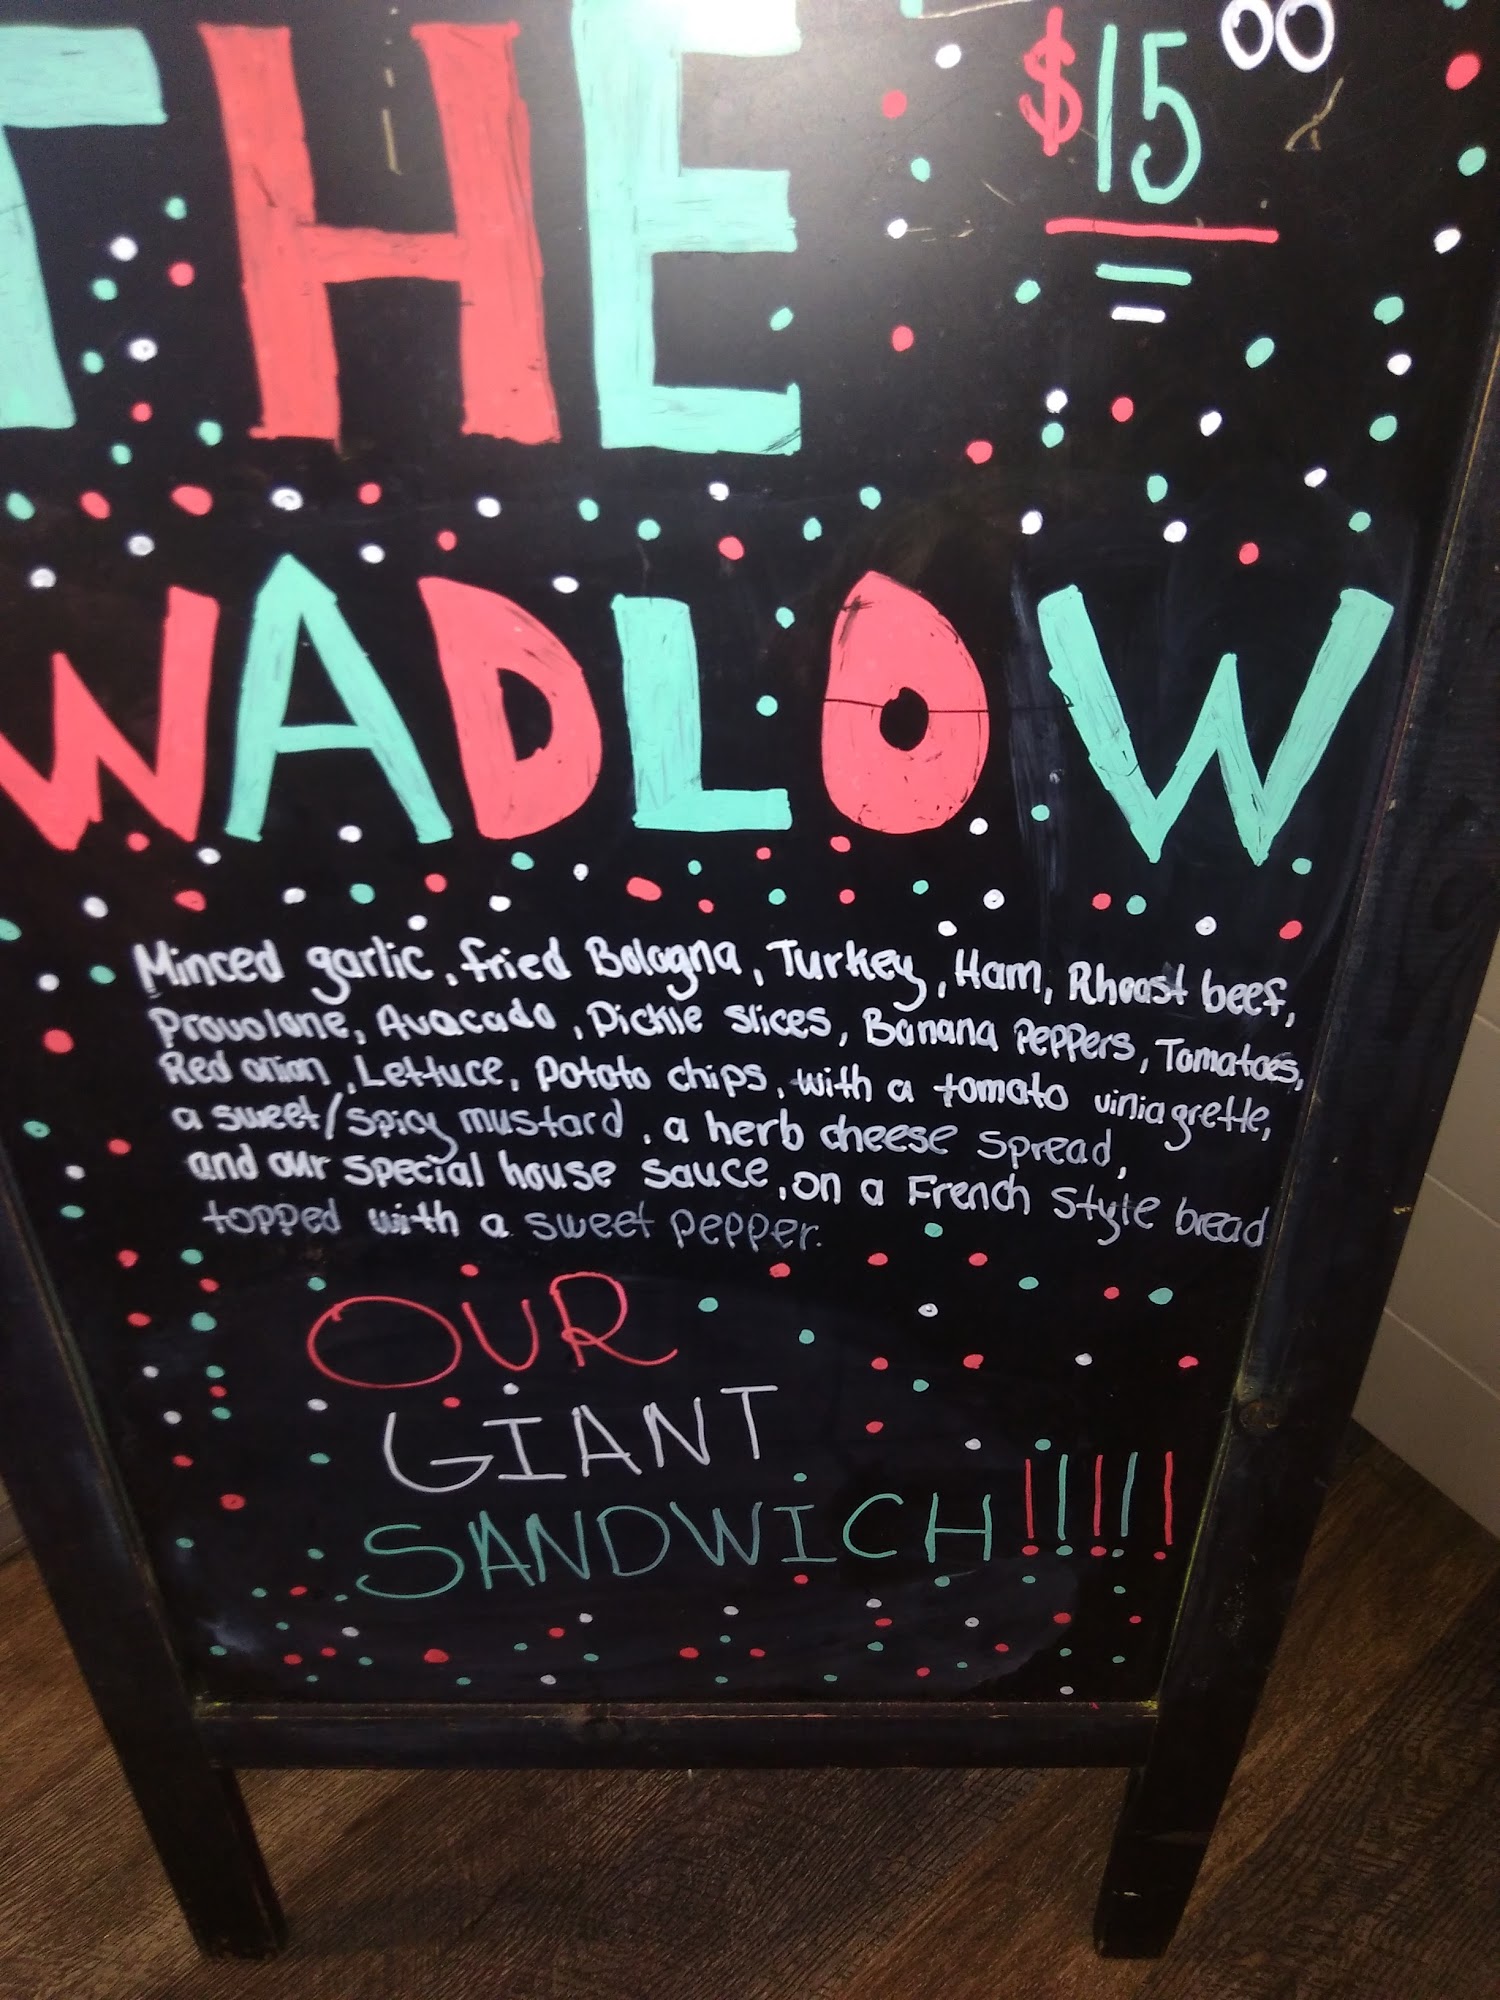 THE
$15 00
WADLOW
Minced garlic, fried Bologna, Turkey, Ham, Rhoast beef,
Provolone, Avocado, Pickle slices, Banana Peppers, Tomatoes,
Red onion, Lettuce, Potato chips, with a tomato viniagrette,
a sweet/spicy mustard, a herb cheese spread,
and our special house sauce, on a French style bread
topped with a sweet pepper.
OUR
GIANT
SANDWICH!!!!!